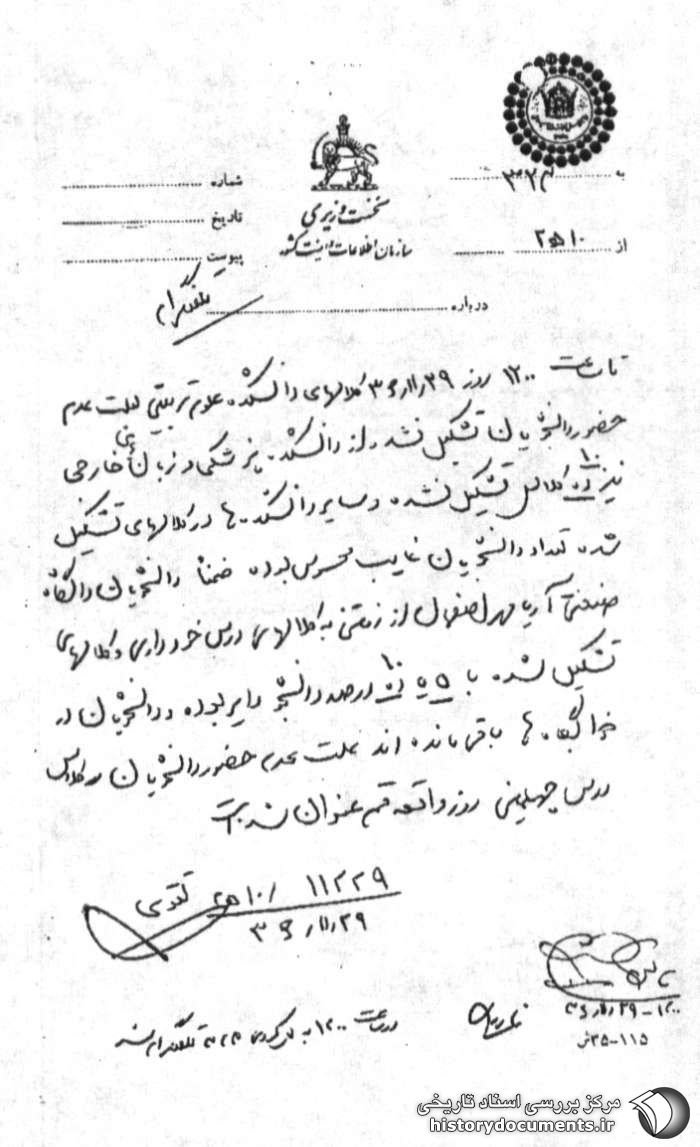 به ۳۲۳
از ۱۰ه۲
شماره
تاریخ
پیوست
نخست وزیری
سازمان اطلاعات و امنیت کشور
درباره
تلفنگرام
تا ساعت ۱۲۰۰ روز ۲۹ر۱۱ر۳۶ کلاسهای دانشکده علوم تربیتی بعلت عدم
حضور دانشجویان تشکیل نشد و از دانشکده پزشکی و زبان خارجی
نیز کلاس تشکیل نشده و سایر دانشکده ها در کلاسهای تشکیل
شده تعداد دانشجویان غایب محسوس بوده ضمناً دانشجویان دانشگاه
صنعتی آریامهر اصفهان از رفتن به کلاسهای درس خودداری و کلاسهای
تشکیل شده با ۵ ۱۰ درصد دانشجو دایر بوده و دانشجویان در
خوابگاه ها باقی مانده اند علت عدم حضور دانشجویان در کلاس
درس چهلمین روز واقعه قم عنوان شده است
۱۱۲۲۹ /۱۰ه۲ تقوی
۲۹ر۱۱ر۳۶
۱۲۰۰-۲۹ر۱۱ر۳۶
۱۱۵-۳۵
در ساعت ۱۲۰۰ به تلفنگرام شد
مرکز بررسی اسناد تاریخی
historydocuments.ir